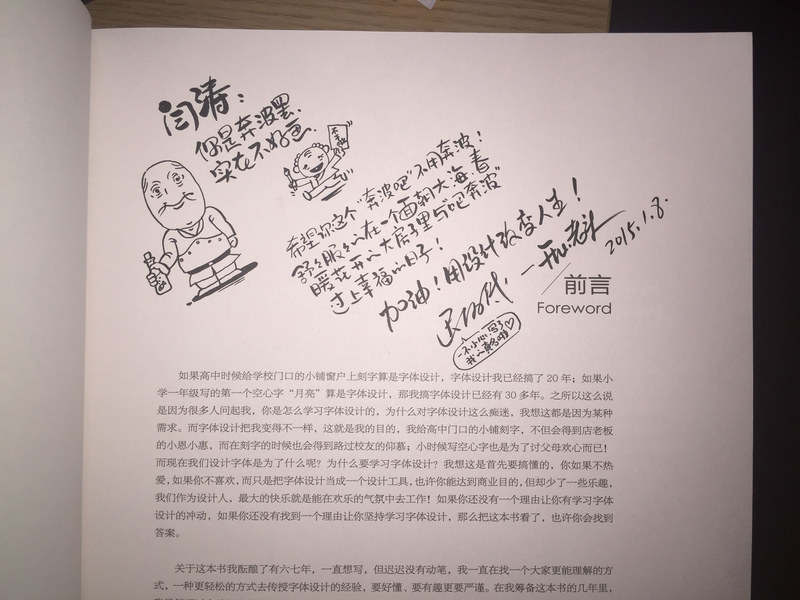 闫涛：
你是奔波罢、
实在不好画、
希望你这个“奔波吧”不用奔波！
舒舒服服的在一个面朝大海春
暖花开的大房子里与“吧奔波”
过上幸福的日子！
加油！用设计改变人生！
2015.1.8.
一不小心写了
我的真名啦
前言
Foreword
如果高中时候给学校门口的小铺窗户上刻字算是字体设计，字体设计我已经搞了 20 年；如果小
学一年级写的第一个空心字“月亮”算是字体设计，那我搞字体设计已经有 30 多年。之所以这么说
是因为很多人问起我，你是怎么学习字体设计的，为什么对字体设计这么痴迷，我想这都是因为某种
需求。而字体设计把我变得不一样，这就是我的目的，我给高中门口的小铺刻字，不但会得到店老板
的小恩小惠，而在刻字的时候也会得到路过校友的仰慕；小时候写空心字也是为了讨父母欢心而已！
而现在我们设计字体是为了什么呢？为什么要学习字体设计？我想这是首先要搞懂的，你如果不热
爱，如果你不喜欢，而只是把字体设计当成一个设计工具，也许你能达到商业目的，但却少了一些乐趣，
我们作为设计人，最大的快乐就是能在欢乐的气氛中去工作！如果你还没有一个理由让你有学习字体
设计的冲动，如果你还没有找到一个理由让你坚持学习字体设计，那么把这本书看了，也许你会找到
答案。
关于这本书我酝酿了有六七年，一直想写，但迟迟没有动笔，我一直在找一个大家更能理解的方
式，一种更轻松的方式去传授字体设计的经验，要好懂、要有趣更要严谨。在我筹备这本书的几年里，